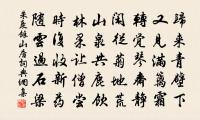 歸来青壁下
又見滿籬霜
轉覺琴齋静
閑從菊地荒
山泉共鹿飲
林果讓僧嘗
時復收新藥
隨雲過石梁
朱慶餘山居詞興網集